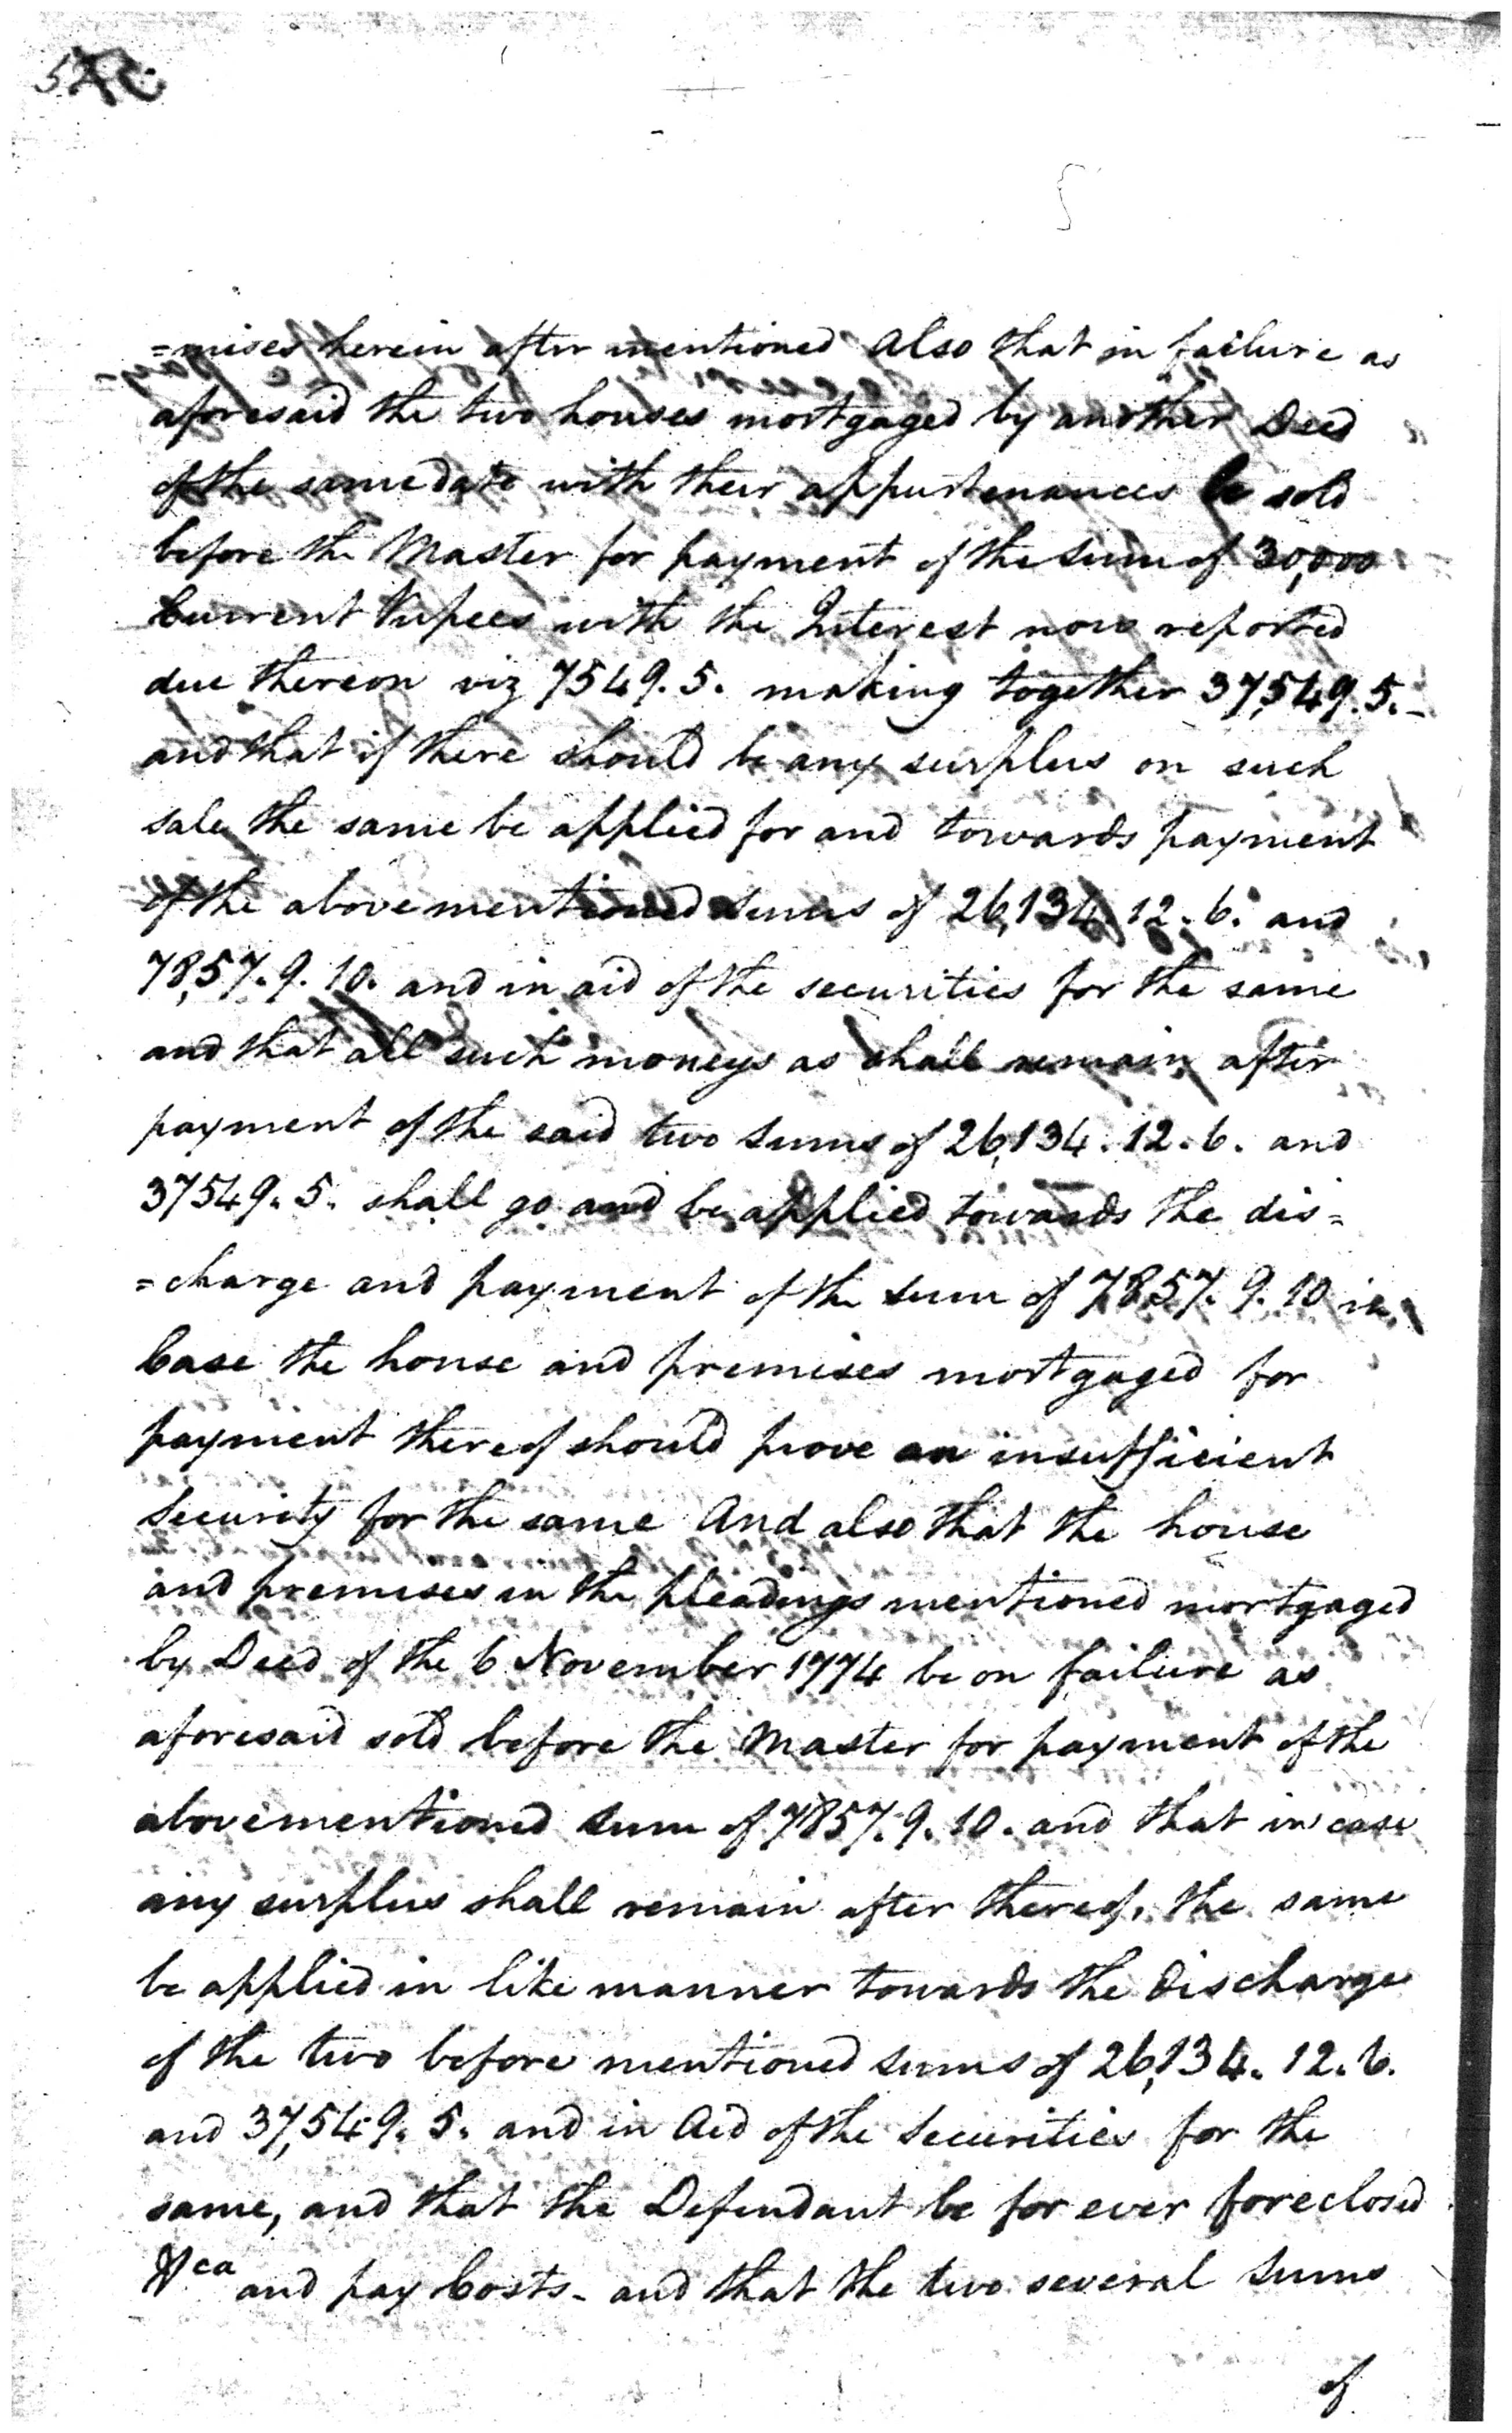 =mises herein after mentioned Also that in failure as
aforesaid the two houses mortgaged by another Deed
of the same date with their appurtenances be sold
before the Master for payment of the sum of 30,000
Current Rupees with the Interest now reported
due thereon viz 7549. 5. making together 37,549. 5. -
and that if there should be any surplus on such
sale the same be applied for and towards payment
of the abovementioned sums of 26,134. 12. 6. and
7857. 9. 10. and in aid of the securities for the same
and that all such moneys as shall remain after
payment of the said two sums of 26,134. 12. 6. and
37549. 5. shall go and be applied towards the dis=
=charge and payment of the sum of 7857. 9. 10 in
Case the house and premises mortgaged for
payment thereof should prove an insufficient
security for the same And also that the house
and premises in the pleadings mentioned mortgaged
by Deed of the 6 November 1774 be on failure as
aforesaid sold before the Master for payment of the
abovementioned sum of 7857. 9. 10. and that in case
any surplus shall remain after thereof, the same
be applied in like manner towards the Discharge
of the two before mentioned sums of 26,134. 12. 6.
and 37,549. 5. and in Aid of the Securities for the
same, and that the Defendant be for ever foreclosed
&ca and pay Costs - and that the two several Sums
of